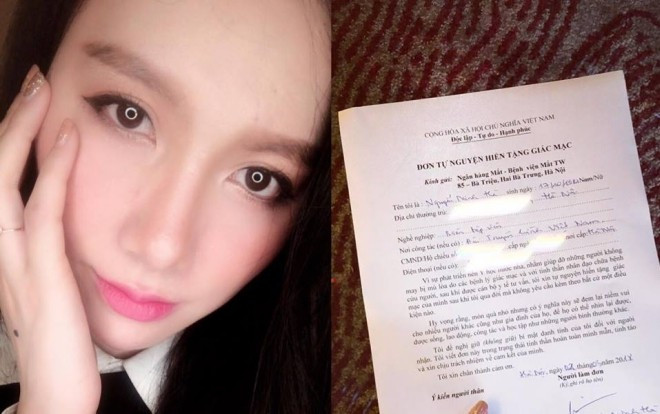 CỘNG HÒA XÃ HỘI CHỦ NGHĨA VIỆT NAM
Độc lập - Tự do - Hạnh phúc
ĐƠN TỰ NGUYỆN HIẾN TẶNG GIÁC MẠC
Kính gửi: Ngân hàng Mắt - Bệnh viện Mắt TW
85 – Bà Triệu, Hai Bà Trưng, Hà Nội
Tên tôi là: Nguyễn sinh ngày Nam/Nữ
Địa chỉ thường trú: Hà Nội
Nghề nghiệp: Biên tập viên
Nơi công tác (nếu có): Đài Truyền hình Việt Nam
CMND/Hộ chiếu số: cấp ngày nơi cấp: Hà Nội
Điện thoại (nếu có):
Vì sự phát triển nền Y học nước nhà, nhằm giúp đỡ những người không
may bị mù lòa do các bệnh lý giác mạc và với tinh thần nhân đạo chữa bệnh
cứu người, sau khi được cán bộ y tế tư vấn, tôi xin tự nguyện hiến tặng giác
mạc của mình sau khi tôi qua đời mà không yêu cầu kèm theo bất cứ một điều
kiện nào.
Hy vọng rằng, món quà nhỏ nhưng có ý nghĩa này sẽ đem lại niềm vui
cho nhiều người khác cũng như gia đình của họ, để họ có thể nhìn lại được,
được sống, lao động, công tác và học tập như những người bình thường khác.
Tôi đề nghị giữ (không giữ) bí mật danh tính của tôi đối với người
nhận. Tôi viết đơn này trong trạng thái tinh thần hoàn toàn minh mẫn, tỉnh táo
và xin chịu trách nhiệm về cam kết của mình.
Tôi xin chân thành cảm ơn.
Hà Nội, ngày 02 năm 2018
Ý kiến người thân
Người làm đơn
(Ký ghi rõ họ tên)